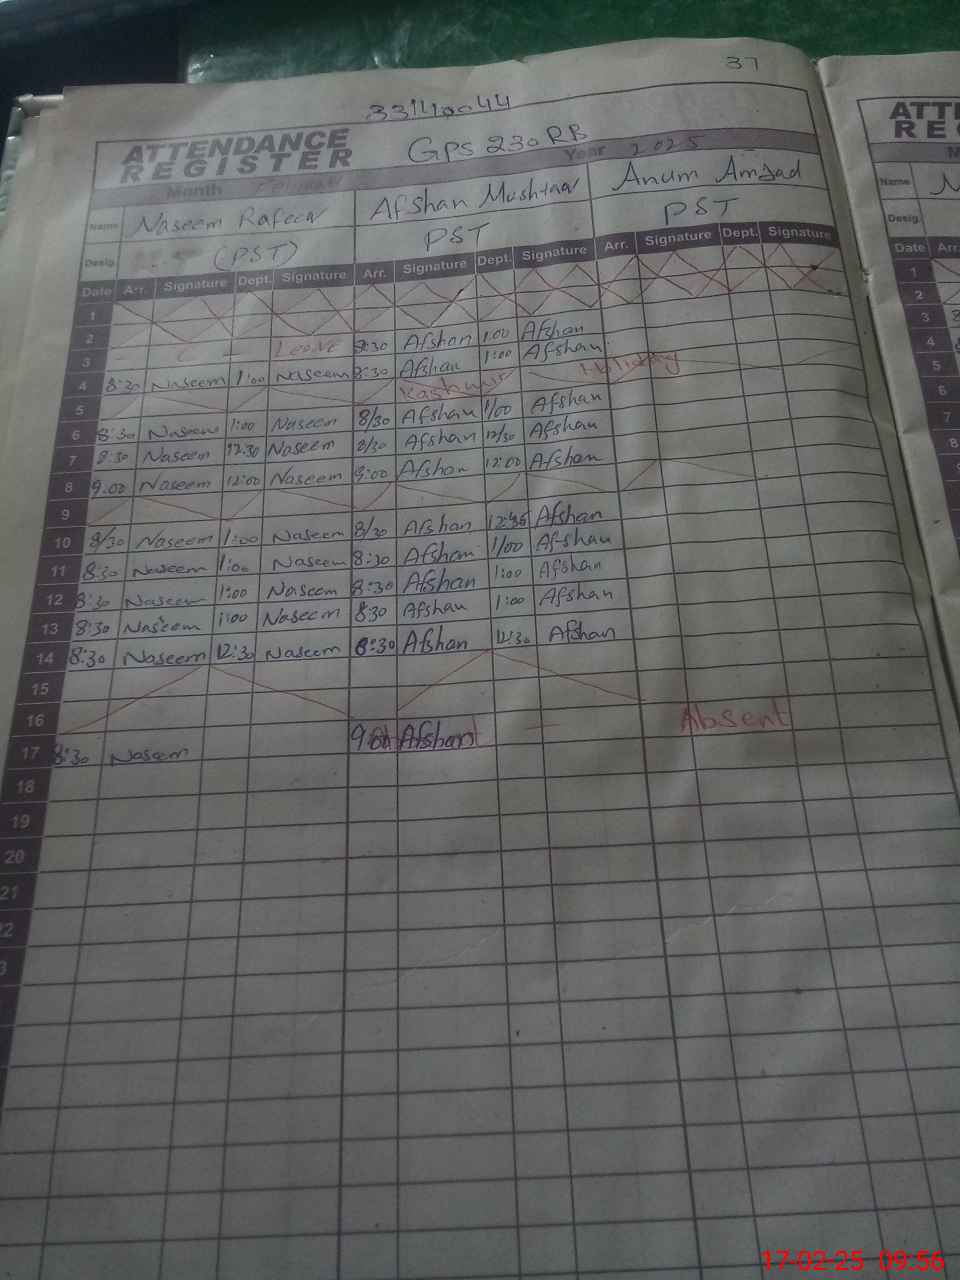 37
33140044
ATTENDANCE REGISTER GPS 230 RB
Month Year 2025
Name Naseem Rafeeq Afshan Mushtaq Anum Amjad
Desig. (PST) PST PST
Date Arr. Signature Dept. Signature Arr. Signature Dept. Signature Arr. Signature Dept. Signature
1
2
3 Leave 8:30 Afshan 1:00 Afshan
4 8:30 Naseem 1:00 Naseem 8:30 Afshan 1:00 Afshan
5 Kashmir Holiday
6 8:30 Naseem 1:00 Naseem 8/30 Afshan 1/00 Afshan
7 8:30 Naseem 12:30 Naseem 8/30 Afshan 12/30 Afshan
8 9:00 Naseem 12:00 Naseem 9:00 Afshan 12:00 Afshan
9
10 8/30 Naseem 1:00 Naseem 8/30 Afshan 12:45 Afshan
11 8:30 Naseem 1:00 Naseem 8:30 Afshan 1/00 Afshan
12 8:30 Naseem 1:00 Naseem 8:30 Afshan 1:00 Afshan
13 8:30 Naseem 1:00 Naseem 8:30 Afshan 1:00 Afshan
14 8:30 Naseem 12:30 Naseem 8:30 Afshan 12:30 Afshan
15
16
17 8:30 Naseem 9:00 Afshan Absent
18
19
20
21
22
3
ATT
RE
M
Name
Desig.
Date Arr.
1
2
3
4
5
6
7
8
17-02-25 09:56